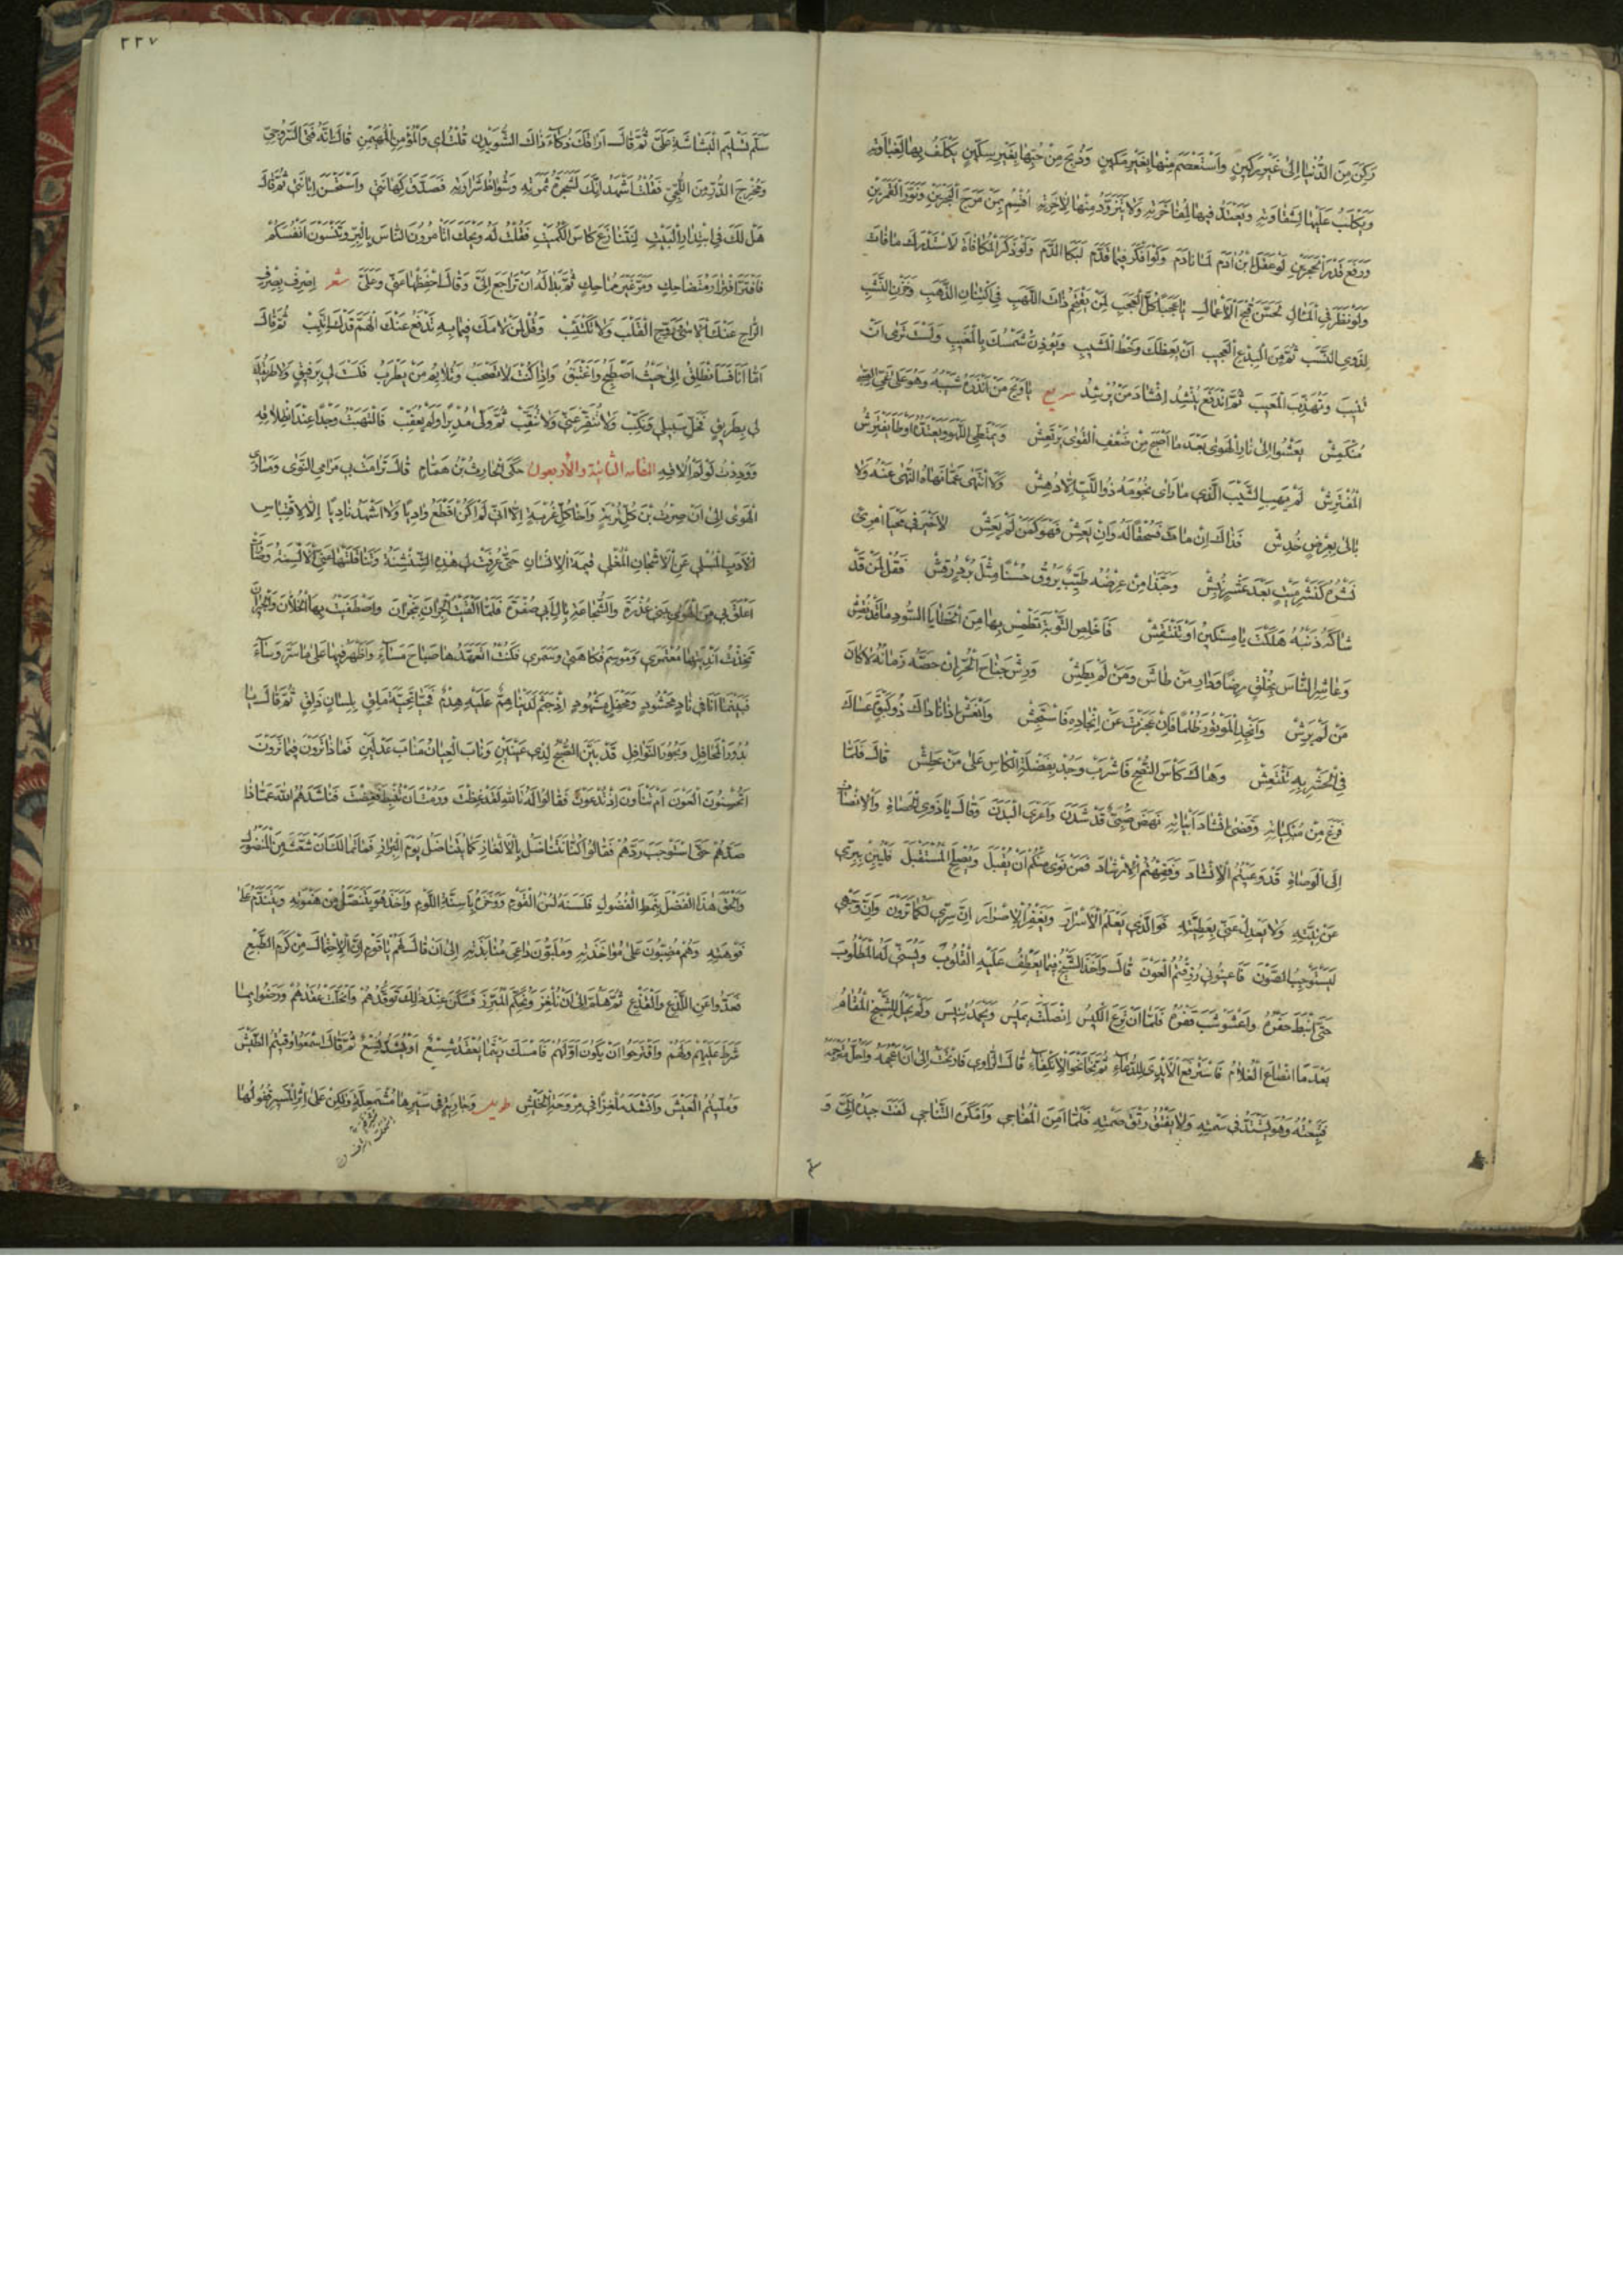 وَرَكِنَ مِنَ الدُّنْيَا اِلىٰ غَيْرِ رَكِينٍ وَاسْتَعْصَمَ مِنْهَا بِغَيْرِ مَكِينٍ وَذُبِحَ مِنْ حُبِّهَا بِغَيْرِ سِكِّينٍ يَكْلَفُ بِهَا لِغَبَاوَتِهِ
وَيَكْلَبُ عَلَيْهَا لِشَقَاوَتِهِ وَيَعْتَدُّ فِيهَا لِمُفَاخَرَتِهِ وَلَا يَتَزَوَّدُ مِنْهَا لِاٰخِرَتِهِ اُقْسِمُ بِمَنْ مَرَجَ الْبَحْرَيْنِ وَنَوَّرَ الْقَمَرَيْنِ
وَرَفَعَ قَدْرَ الْحَجَرَيْنِ لَوْ عَقَلَ ابْنُ اٰدَمَ لَمَا نَادَمَ وَلَوْ افْتَكَرَ فِيمَا قَدَّمَ لَبَكَا الدَّمَ وَلَوْ ذَكَرَ الْمُكَافَاةَ لَاسْتَدْرَكَ مَا فَاتَ
وَلَوْ نَظَرَ فِي الْمَاٰلِ لَحَسَّنَ قُبْحَ الْاَعْمَالِ يَا عَجَبًا كُلَّ الْعَجَبِ لِمَنْ يَقْتَحِمُ ذَاتَ اللَّهَبِ فِي اكْتِنَازِ الذَّهَبِ وَخَزْنِ النَّشَبِ
لِذَوِي النَّسَبِ ثُمَّ مِنَ الْبِدْعِ الْعَجِيبِ اَنْ يَعِظَكَ وَخْطُ الْمَشِيبِ وَتُؤْذِنَ شَمْسُكَ بِالْمَغِيبِ وَلَسْتَ تَرٰى اَنْ
تُنِيبَ وَتُهَذِّبَ الْمَعِيبَ ثُمَّ انْدَفَعَ يُنْشِدُ اِنْشَادَ مَنْ يُرْشِدُ سريع يَا وَيْحَ مَنْ اَنْذَرَهُ شَيْبُهُ وَهُوَ عَلىٰ غَيِّ الصِّبَا
مُنْكَمِشْ يَعْشُوا اِلىٰ نَارِ الْهَوٰى بَعْدَ مَا اَصْبَحَ مِنْ ضُعْفِ الْقُوٰى يَرْتَعِشْ وَيَمْتَطِي اللَّهْوَ وَيَعْتَدُّهُ اَوْطَأَ مَا يَفْتَرِشُ
الْمُفْتَرِشْ لَمْ يَهَبِ الشَّيْبَ الَّذِي مَا رَاٰى نُجُومَهُ ذُو اللُّبِّ اِلَّا دُهِشْ وَلَا انْتَهٰى عَمَّا نَهَاهُ النُّهٰى عَنْهُ وَلَا
بَالٰى بِعِرْضٍ خُدِشْ فَذَاكَ اِنْ مَاتَ فَسُحْقًا لَهُ وَاِنْ يَعِشْ فَهُوَ كَمَنْ لَمْ يَعِشْ لَا خَيْرَ فِي مَحْيَا امْرِئٍ
نَشْرُهُ كَنَشْرِ مَيْتٍ بَعْدَ عَشْرٍ نُبِشْ وَحَبَّذَا مَنْ عِرْضُهُ طَيِّبٌ يَرُوقُ حُسْنًا مِثْلَ بُرْدٍ رُقِشْ فَقُلْ لِمَنْ قَدْ
شَاكَهُ ذَنْبُهُ هَلَكْتَ يَا مِسْكِينُ اَوْ تَنْتَقِشْ فَاَخْلِصِ التَّوْبَةَ تَطْمِسْ بِهَا مِنَ الْخَطَايَا السُّودِ مَا قَدْ نُقِشْ
وَعَاشِرِ النَّاسَ بِخُلْقٍ رِضًا وَدَارِ مَنْ طَاشَ وَمَنْ لَمْ يَطِشْ وَرِشْ جَنَاحَ الْحُرِّ اِنْ حَصَّهُ زَمَانُهُ لَا كَانَ
مَنْ لَمْ يَرِشْ وَاَنْجِدِ الْمَوْتُورَ ظُلْمًا فَاِنْ عَجَزْتَ عَنْ اِنْجَادِهِ فَاسْتَجِشْ وَانْعَشْ اِذَا نَادَاكَ ذُو كَبْوَةٍ عَسَاكَ
فِي الْحَشْرِ بِهِ تَنْتَعِشْ وَهَاكَ كَأْسَ النُّصْحِ فَاشْرَبْ وَجُدْ بِفَضْلَةِ الْكَأْسِ عَلىٰ مَنْ عَطِشْ قَالَ فَلَمَّا
فَرَغَ مِنْ مُبْكِيَاتِهِ وَقَضٰى اِنْشَادَ اَبْيَاتِهِ نَهَضَ صَبِيٌّ قَدْ شَدَنَ وَاَعْرَى الْبَدَنَ وَقَالَ يَا ذَوِي الْحَصَاةِ وَالْاِنْصَاتِ
اِلَى الْوَصَاةِ قَدْ وَعَيْتُمُ الْاِنْشَادَ وَفَقِهْتُمُ الْاِرْشَادَ فَمَنْ نَوٰى مِنْكُمْ اَنْ يَقْبَلَ وَيُصْلِحَ الْمُسْتَقْبَلَ فَلْيُبِنْ بِبِرِّي
عَنْ نِيَّتِهِ وَلَا يَعْدِلْ عَنِّي بِعَطِيَّتِهِ فَوَالَّذِي يَعْلَمُ الْاَسْرَارَ وَيَغْفِرُ الْاِصْرَارَ اِنَّ سِرِّي لَكَمَا تَرَوْنَ وَاِنَّ وَجْهِي
لَيَسْتَوْجِبُ الصَّوْنَ فَاَعِينُونِي رُزِقْتُمُ الْعَوْنَ قَالَ وَاَخَذَ الشَّيْخُ فِيمَا يَعْطِفُ عَلَيْهِ الْقُلُوبَ وَيُسَنِّي لَهُ الْمَطْلُوبَ
حَتّٰى اَنْبَطَ حَفْرُهُ وَاعْشَوْشَبَ قَفْرُهُ فَلَمَّا اَنْ تَرِعَ الْكِيسُ اِنْصَلَتَ يَمِيسُ وَيَحْمَدُ تِنِّيسَ وَلَمْ يَحْلُ لِلشَّيْخِ الْمُقَامُ
بَعْدَ مَا انْصَاعَ الْغُلَامُ فَاسْتَرْفَعَ الْاَيْدِيَ لِلدُّعَاءِ ثُمَّ نَحَا نَحْوَ الْاِنْكِفَاءِ قَالَ الرَّاوِي فَارْتَحْتُ اِلىٰ اَنْ اَعْجُمَهُ وَاَحُلَّ مُتَرْجَمَهُ
فَتَبِعْتُهُ وَهُوَ يَشْتَدُّ فِي سَمْتِهِ وَلَا يَفْتُقُ رَتْقَ صَمْتِهِ فَلَمَّا اَمِنَ الْمُفَاجِي وَاَمْكَنَ التَّنَاجِي لَفَتَ جِيدَهُ اِلَيَّ وَ
٢٢٧
سَلَّمَ تَسْلِيمَ الْبَشَاشَةِ عَلَيَّ ثُمَّ قَالَ اَرَاقَكَ ذُكَاءُ ذَاكَ الشُّوَيْدِنِ قُلْتُ اِي وَالْمُؤْمِنِ الْمُهَيْمِنِ قَالَ اِنَّهُ فَتَى السَّرُوجِيِّ
وَمُخْرِجِ الدُّرِّ مِنَ اللُّجِّيِّ فَقُلْتُ اَشْهَدُ اِنَّكَ لَشَجَرَةُ ثَمَرَتِهِ وَشُوَاظُ شَرَارَتِهِ فَصَدَّقَ كَهَانَتِي وَاسْتَحْسَنَ اِبَانَتِي ثُمَّ قَالَ
هَلْ لَكَ فِي ابْتِدَارِ الْبَيْتِ لِنَتَنَازَعَ كَاسَ الْكُمَيْتِ فَقُلْتُ لَهُ وَيْحَكَ اَتَأْمُرُونَ النَّاسَ بِالْبِرِّ وَتَنْسَوْنَ اَنْفُسَكُمْ
فَافْتَرَّ افْتِرَارَ مُتَضَاحِكٍ وَمَرَّ غَيْرَ مُمَاحِكٍ ثُمَّ بَدَا لَهُ اَنْ تَرَاجَعَ اِلَيَّ وَقَالَ احْفَظْهَا عَنِّي وَعَلَيَّ شعر اِصْرِفْ بِصِرْفِ
الرَّاحِ عَنْكَ الْاَسٰى وَرَوِّحِ الْقَلْبَ وَلَا تَكْتَئِبْ وَقُلْ لِمَنْ لَامَكَ فِيمَا بِهِ تَدْفَعُ عَنْكَ الْهَمَّ قَدْكَ اتَّئِبْ ثُمَّ قَالَ
اَمَّا اَنَا فَسَاَنْطَلِقُ اِلىٰ حَيْثُ اَصْطَبِحُ وَاَغْتَبِقُ وَاِذَا كُنْتَ لَا تَصْحَبُ وَتُلَايِمُ مَنْ يَطْرَبُ فَلَسْتَ لِي بِرَفِيقٍ وَلَا طَرِيقُكَ
لِي بِطَرِيقٍ فَخَلِّ سَبِيلِي وَنَكِّبْ وَلَا تُنَقِّرْ عَنِّي وَلَا تُنَقِّبْ ثُمَّ وَلّٰى مُدْبِرًا وَلَمْ يُعَقِّبْ فَالْتَهَبْتُ وَجْدًا عِنْدَ انْطِلَاقِهِ
وَوَدِدْتُ لَوْ لَمْ اُلَاقِهِ المقامه الثانية والأربعون حَكَى الْحَارِثُ بْنُ هَمَّامٍ قَالَ تَرَامَتْ بِي مَرَامِي النَّوٰى وَمَسَارِي
الْهَوٰى اِلىٰ اَنْ صِرْتُ ابْنَ كُلِّ تُرْبَةٍ وَاَخَا كُلِّ غُرْبَةٍ اِلَّا اَنِّي لَمْ اَكُنْ اَقْطَعُ وَادِيًا وَلَا اَشْهَدُ نَادِيًا اِلَّا لِاقْتِبَاسِ
الْاَدَبِ الْمُسْلِي عَنِ الْاَشْجَانِ الْمُغْلِي قِيمَةَ الْاِنْسَانِ حَتّٰى عُرِفَتْ لِي هٰذِهِ الشِّنْشِنَةُ وَتَنَاقَلَتْهَا عَنِّي الْاَلْسِنَةُ وَصَارَتْ
اَعْلَقَ بِي مِنَ الْهَوٰى بِبَنِي عُذْرَةَ وَالشَّجَاعَةِ بِاٰلِ اَبِي صُفْرَةَ فَلَمَّا اَلْقَيْتُ الْجِرَانَ بِنَجْرَانَ وَاصْطَفَيْتُ بِهَا الْخُلَّانَ وَالْجِيرَانَ
تَخِذْتُ اَنْدِيَتَهَا مُعْتَمَرِي وَمَوْسِمَ فُكَاهَتِي وَسَمَرِي فَكُنْتُ اَتَعَهَّدُهَا صَبَاحَ مَسَاءَ وَاَظْهَرُ فِيهَا عَلىٰ مَا سَرَّ وَسَاءَ
فَبَيْنَمَا اَنَا فِي نَادٍ مَحْشُودٍ وَمَحْفِلٍ مَشْهُودٍ اِذْ جَثَمَ لَدَيْنَا هِمٌّ عَلَيْهِ هِدْمٌ فَحَيَّا تَحِيَّةَ مَلِقٍ بِلِسَانٍ ذَلِقٍ ثُمَّ قَالَ يَا
بُدُورَ الْمَحَافِلِ وَبُحُورَ النَّوَافِلِ قَدْ بَيَّنَ الصُّبْحُ لِذِي عَيْنَيْنِ وَنَابَ الْعِيَانُ مَنَابَ عَدْلَيْنِ فَمَاذَا تَرَوْنَ فِيمَا تَرَوْنَ
اَتُحْسِنُونَ الْعَوْنَ اَمْ تَنْاَوْنَ اِذْ تُدْعَوْنَ فَقَالُوا لَهُ تَاللهِ لَقَدْ غِظْتَ وَرُمْتَ اَنْ تُنْبِطَ فَغِضْتَ فَنَاشَدَهُمُ اللهَ عَمَّا ذَا
صَدَّهُمْ حَتَّى اسْتَوْجَبَ رَدَّهُمْ فَقَالُوا كُنَّا نَتَنَاضَلُ بِالْاَلْغَازِ كَمَا يُتَنَاضَلُ يَوْمَ الْبِرَازِ فَمَا تَمَالَكَ اَنْ شَعَّثَ مِنَ الْمَنْضُولِ
وَاَلْحَقَ هٰذَا الْفَضْلَ بِنَمَطِ الْفُضُولِ فَلَسَنَهُ لُسْنُ الْقَوْمِ وَوَخَزُوهُ بِاَسِنَّةِ اللَّوْمِ وَاَخَذَ هُوَ يَتَنَصَّلُ مِنْ هَفْوَتِهِ وَيَتَنَدَّمُ عَلىٰ
فَوْهَتِهِ وَهُمْ مُضِبُّونَ عَلىٰ مُؤَاخَذَتِهِ وَمُلَبُّونَ دَاعِيَ مُنَابَذَتِهِ اِلىٰ اَنْ قَالَ لَهُمْ يَا قَوْمِ اِنَّ الْاِحْتِمَالَ مِنْ كَرَمِ الطَّبْعِ
فَعَدُّوا عَنِ اللَّذْعِ وَالْقَذْعِ ثُمَّ هَلُمَّ اِلىٰ اَنْ نُلْغِزَ وَنُحَكِّمَ الْمُبَرِّزَ فَسَكَنَ عِنْدَ ذٰلِكَ تَوَقُّدُهُمْ وَانْحَلَّتْ عُقَدُهُمْ وَرَضُوا بِمَا
شَرَطَ عَلَيْهِمْ وَلَهُمْ وَاقْتَرَحُوا اَنْ يَكُونَ اَوَّلَهُمْ فَاَمْسَكَ رَيْثَمَا يُعْقَدُ شِسْعٌ اَوْ يُشَدُّ نِسْعٌ ثُمَّ قَالَ اسْمَعُوا وُقِيتُمُ الطَّيْشَ
وَمُلِّيتُمُ الْعَيْشَ وَاَنْشَدَ مُلْغِزًا فِي مِرْوَحَةِ الْخَيْشِ طويل وَجَارِيَةٍ فِي سَيْرِهَا مُشْمَعِلَّةٍ وَلٰكِنْ عَلىٰ اِثْرِ الْمَسِيرِ قُفُولُهَا